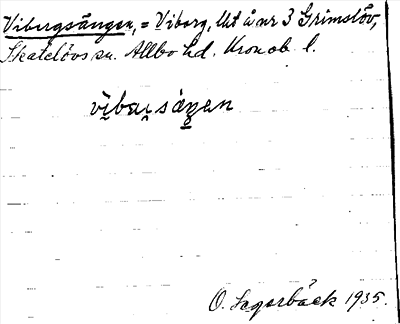 Vibergsängen, = Viborg, Ut å nr 3 Grimslöv,
Skatelövs sn. Allbo hd. Kronob. l.
vibarsáŋen
O. Lagerbäck 1935.